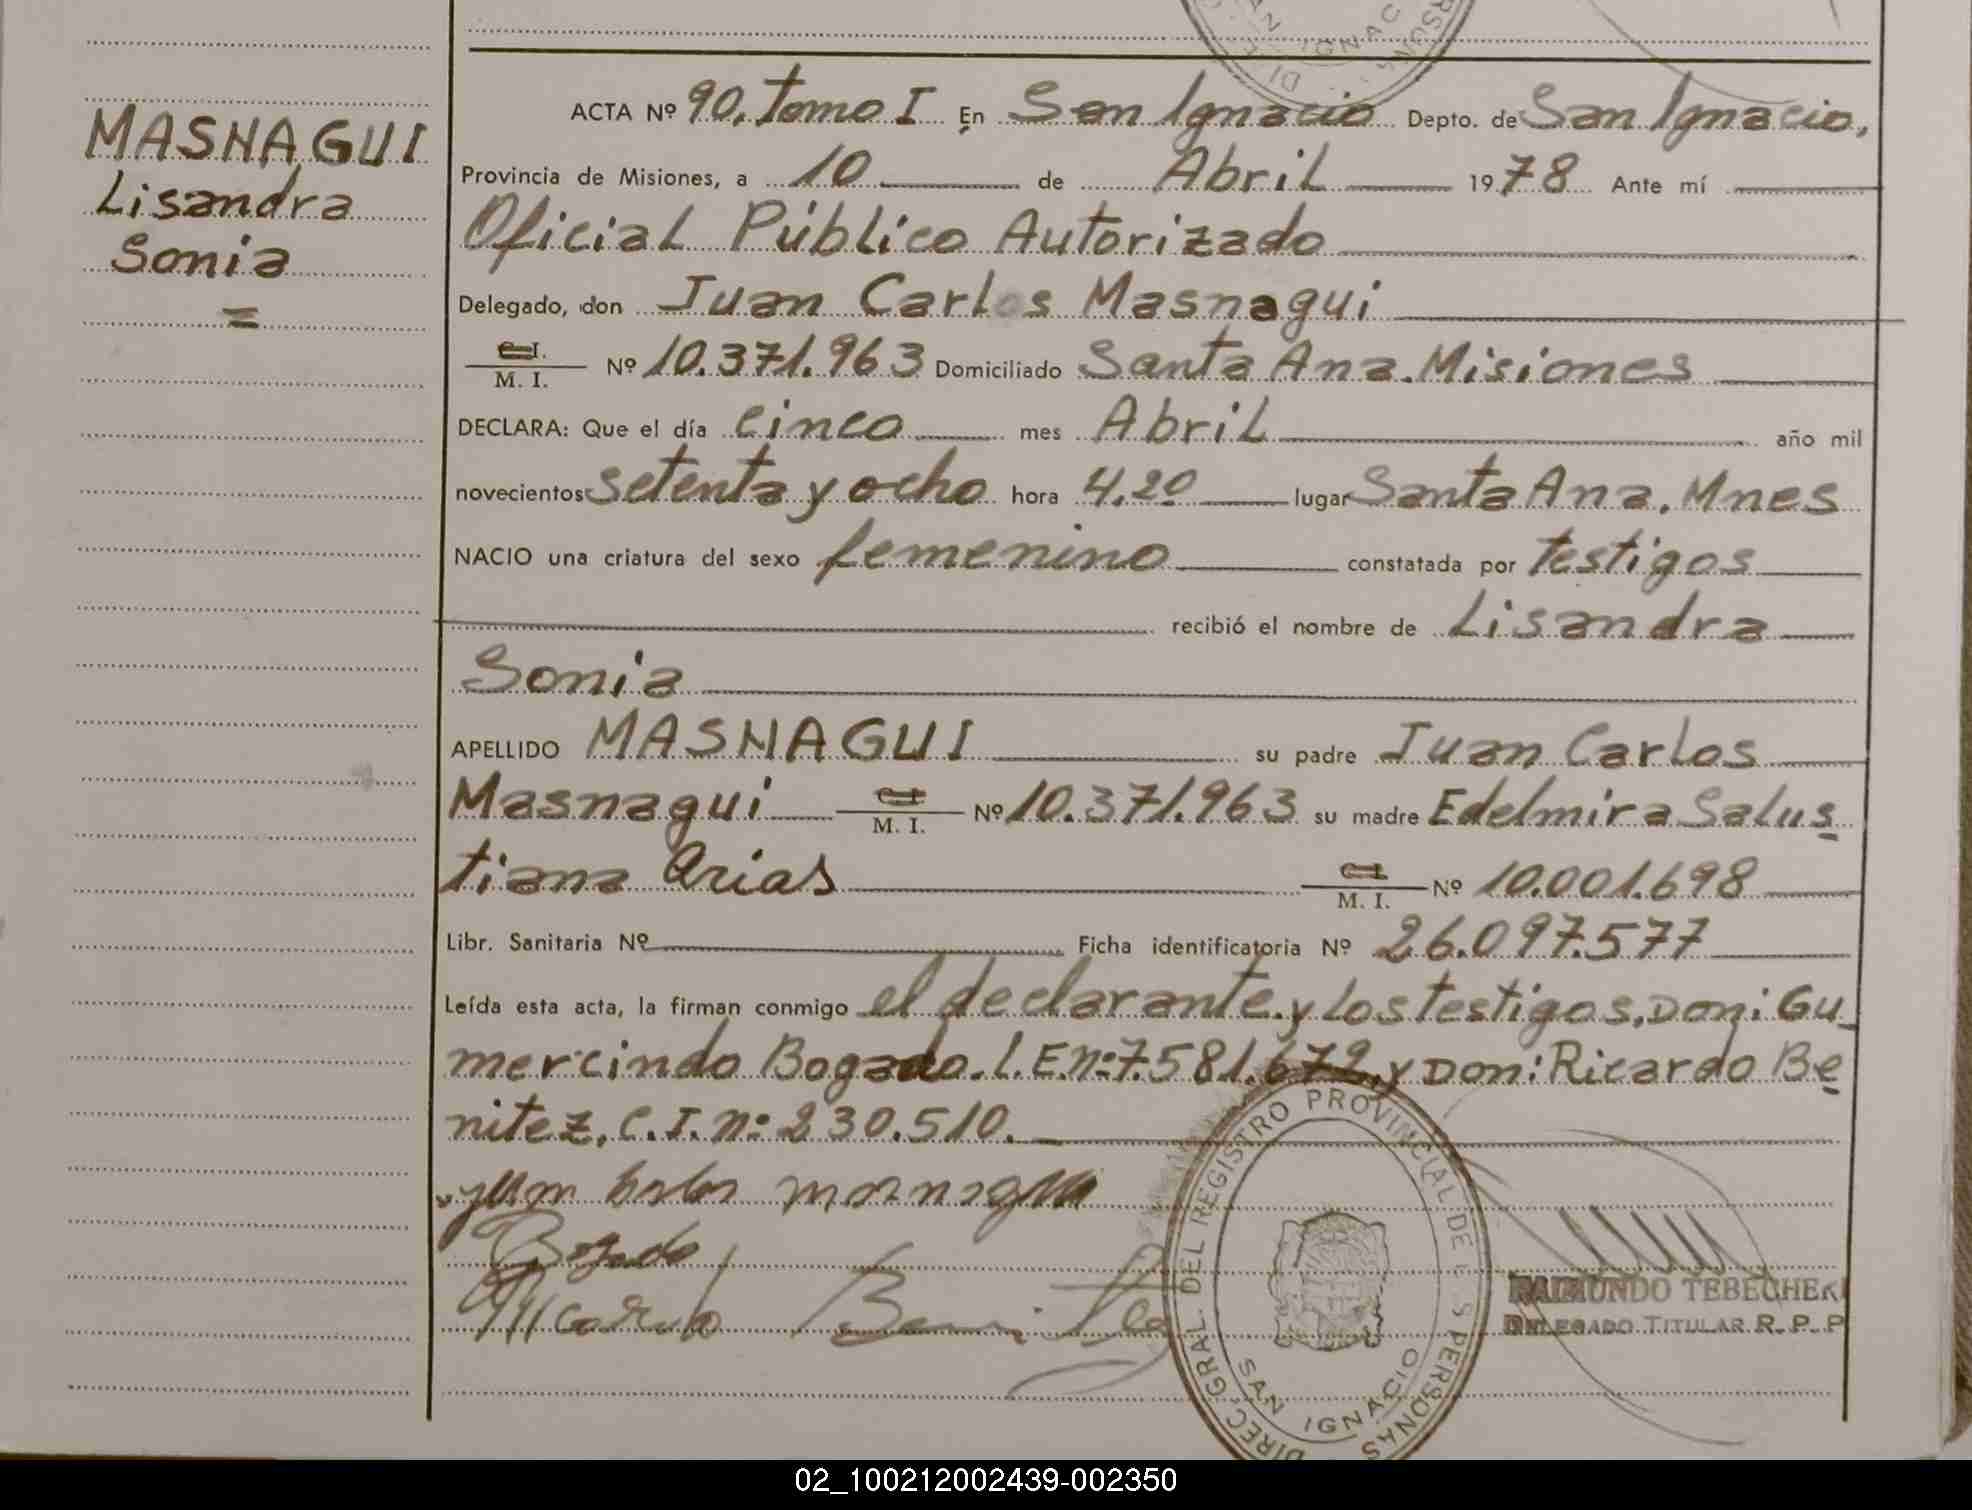 MASNAGUI
Lisandra
Sonia
=
ACTA Nº 90. Tomo I En San Ignacio Depto. de San Ignacio,
Provincia de Misiones, a 10 de Abril 1978 Ante mí
Oficial Público Autorizado
Delegado, don Juan Carlos Masnagui
C.I.
M. I. Nº 10.371.963 Domiciliado Santa Ana. Misiones
DECLARA: Que el día cinco mes Abril año mil
novecientos setenta y ocho hora 4.20 lugar Santa Ana. Mnes
NACIO una criatura del sexo femenino constatada por testigos
recibió el nombre de Lisandra
Sonia
APELLIDO MASNAGUI su padre Juan Carlos
Masnagui C.I. M. I. Nº 10.371.963 su madre Edelmira Salus
tiana Arias C.I. M. I. Nº 10.001.698
Libr. Sanitaria Nº Ficha identificatoria Nº 26.097.577
Leída esta acta, la firman conmigo el declarante y los testigos, Don: Gu
mercindo Bogado. L.E.nº:7.581.672, y Don: Ricardo Be
nitez, C.I. nº: 230.510.
Bogado
Ricardo Benitez
DIREC. GRAL. DEL REGISTRO PROVINCIAL DE L S PERSONAS
SAN IGNACIO
RAIMUNDO TEBECHERI
DELEGADO TITULAR R. P. P
02_100212002439-002350